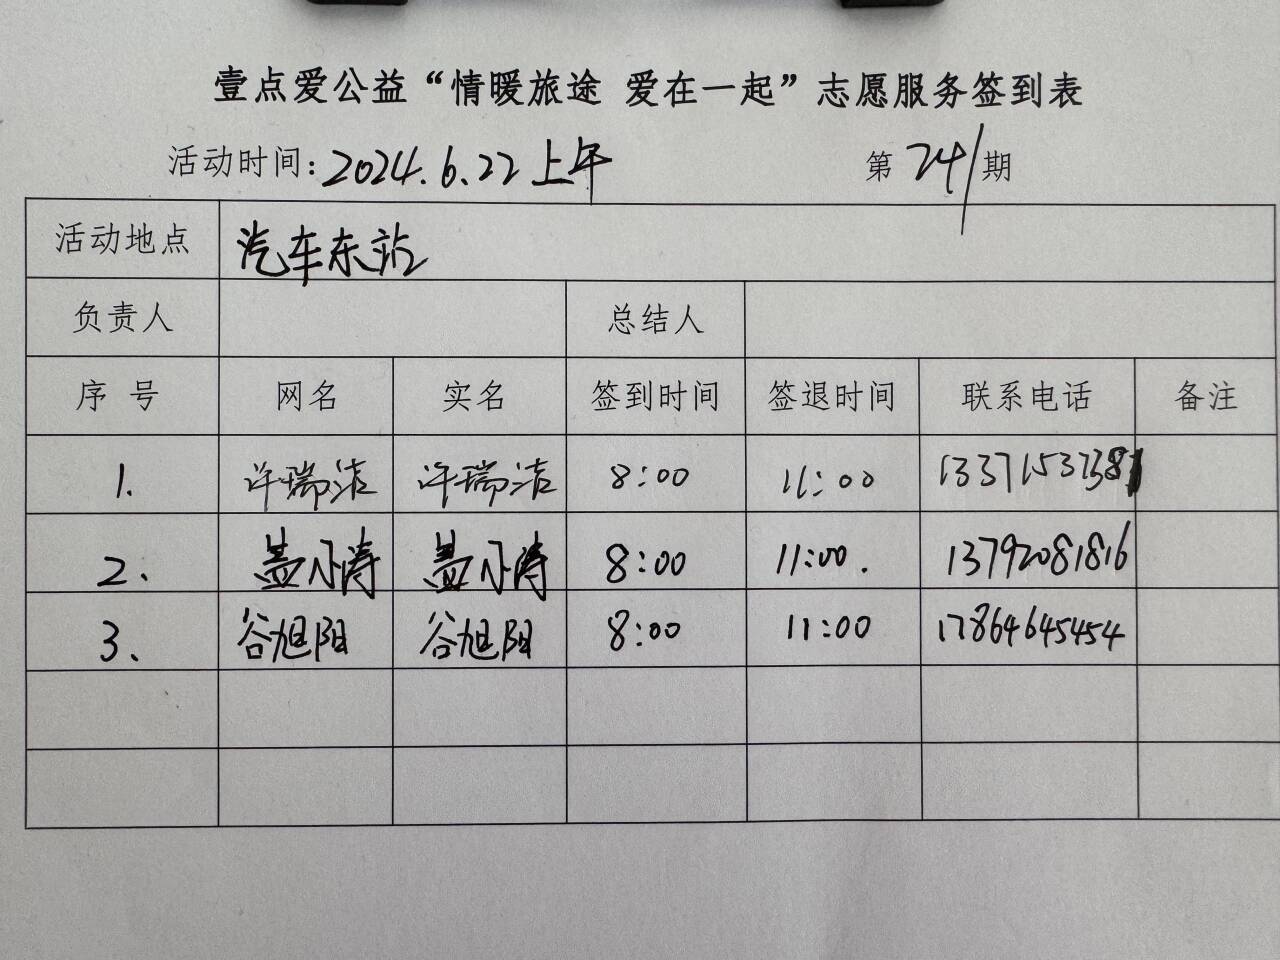 壹点爱公益“情暖旅途 爱在一起”志愿服务签到表
活动时间：2024.6.22上午 第241期
活动地点 汽车东站
负责人 总结人
序号 网名 实名 签到时间 签退时间 联系电话 备注
1. 许瑞洁 许瑞洁 8:00 11:00
2. 盖小涛 盖小涛 8:00 11:00. 13792081816
3. 谷旭阳 谷旭阳 8:00 11:00 17864645454